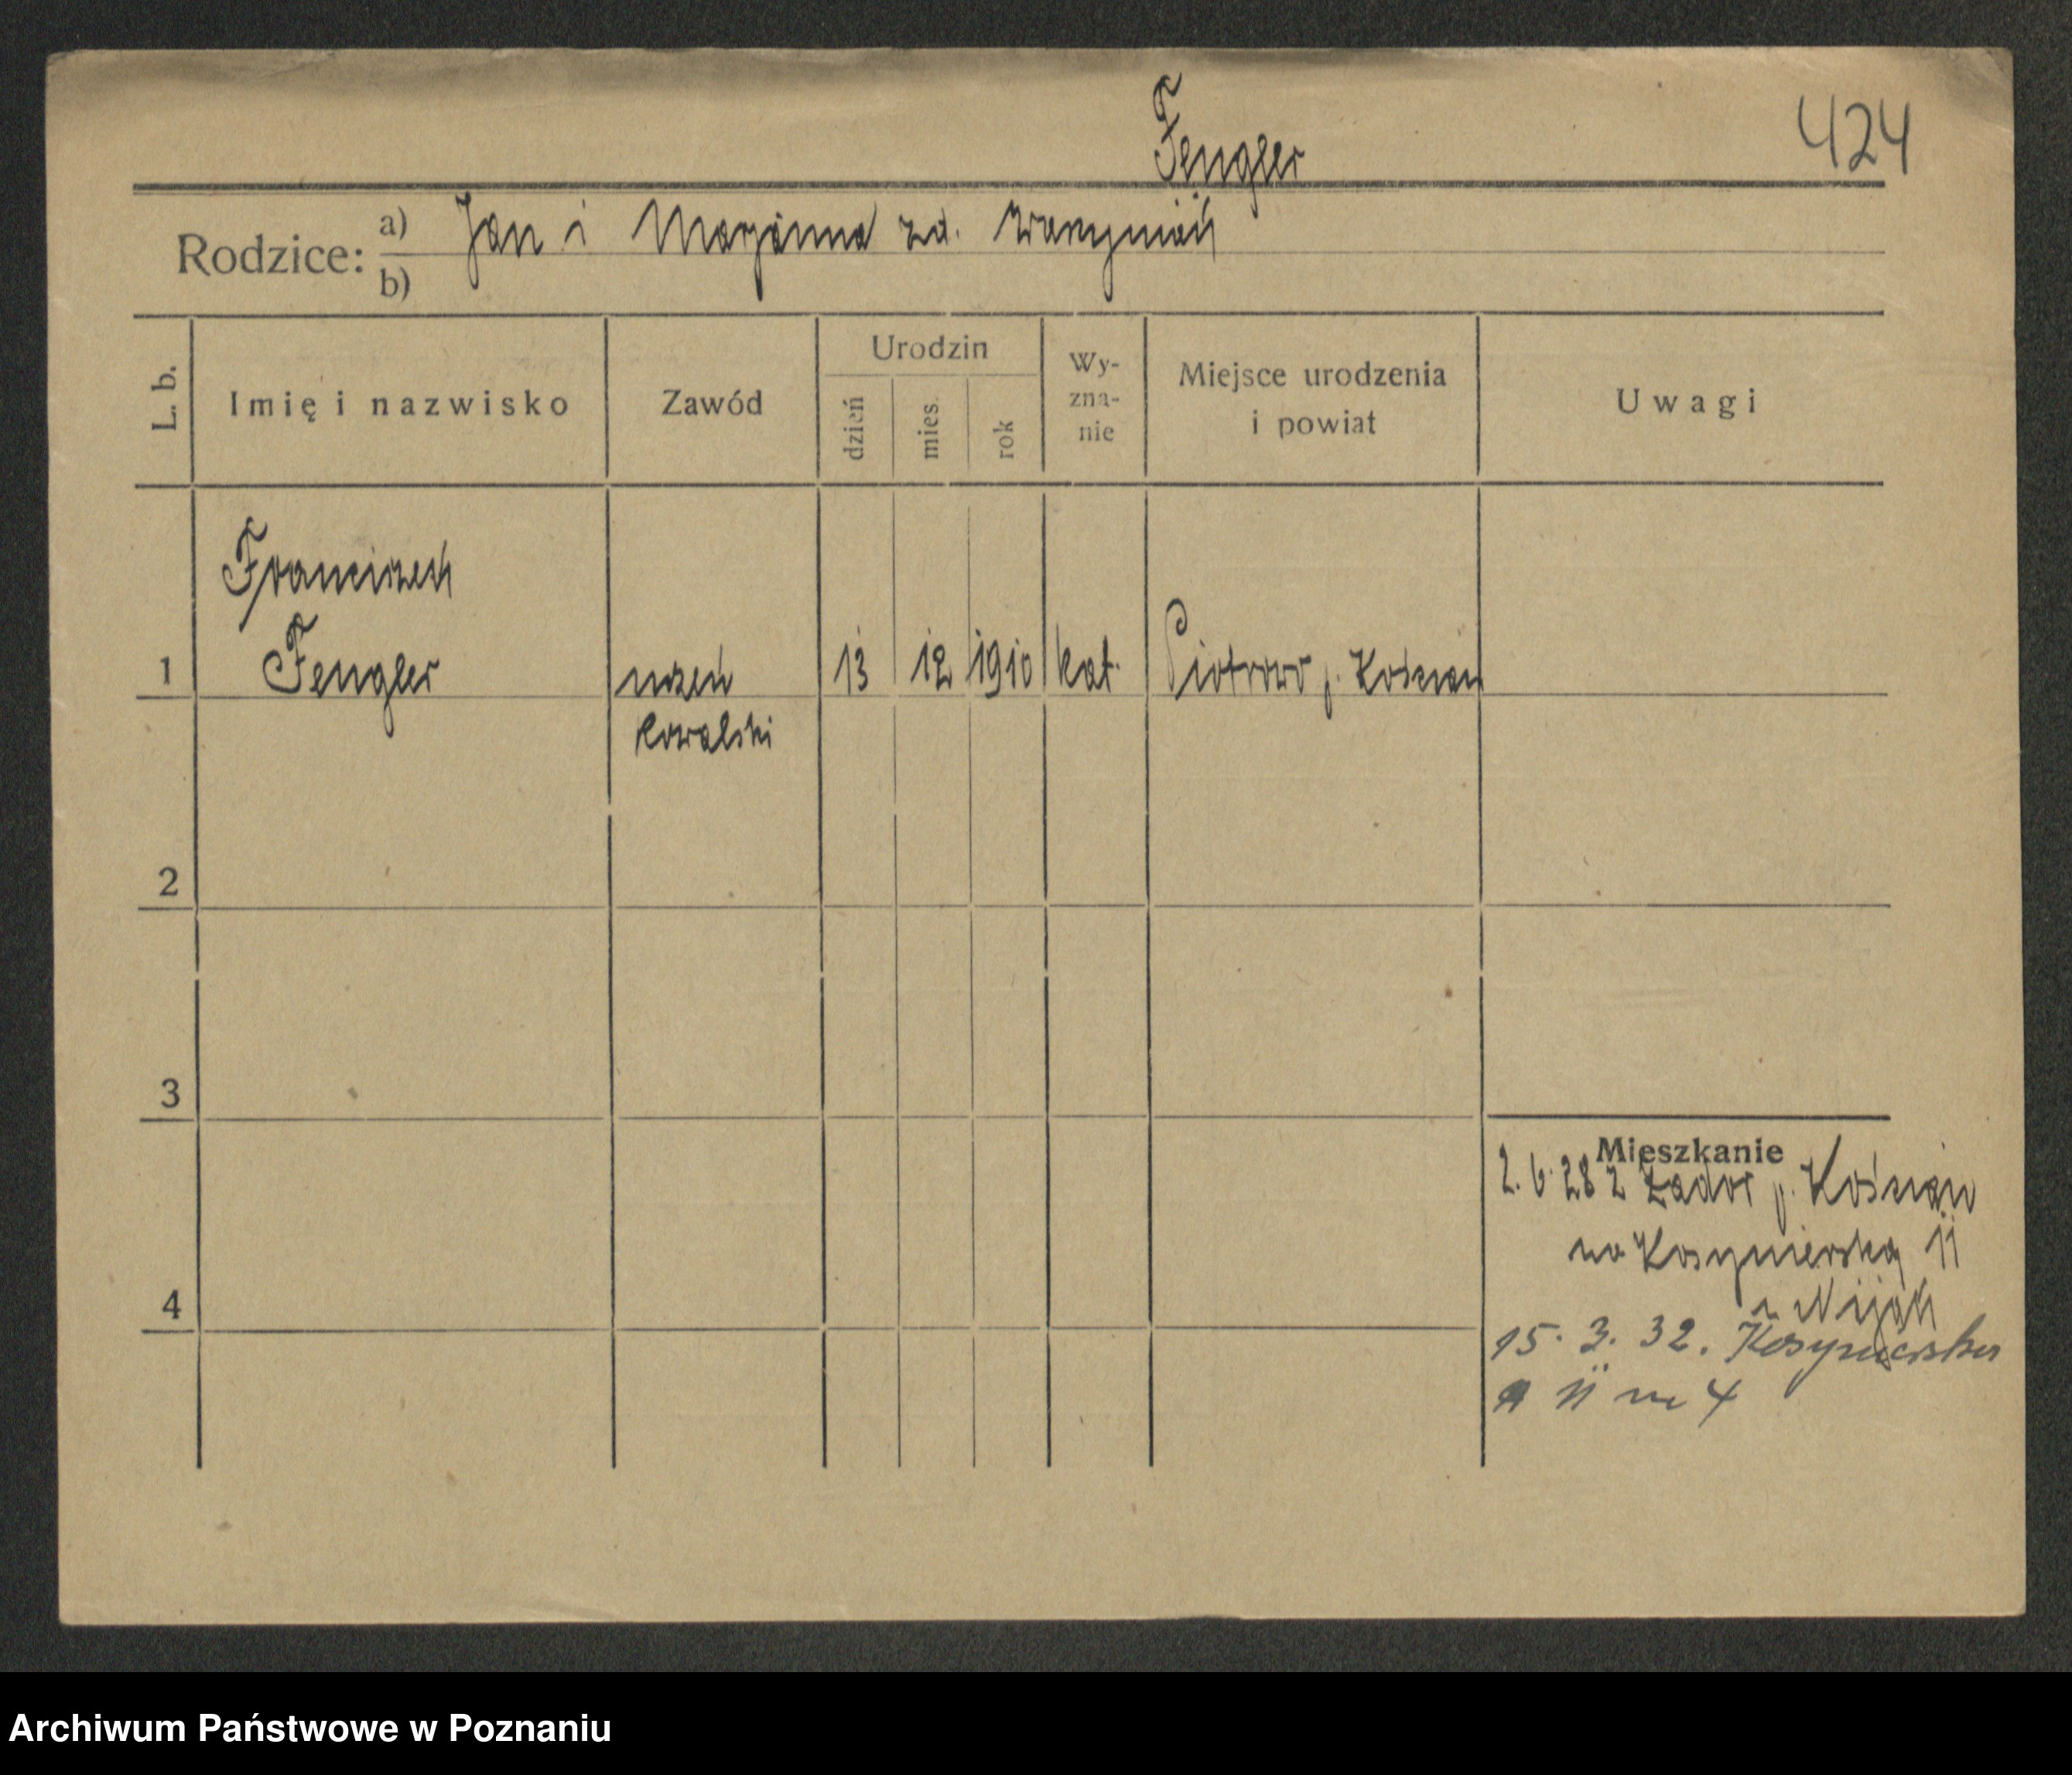 Fengler
424
Rodzice:
a) Jan i Maryanna zd.
b)
L. b.
Imię i nazwisko
Zawód
Urodzin
dzień
mies.
rok
Wy-
zna-
nie
Miejsce urodzenia
i powiat
Uwagi
Franciszek
1 Fengler uczeń 13 12 1910 kat. Piotrowo p. Kościan
kowalski
2
3
4
Mieszkanie
2. 6. 28 z p. Kościan
na 11
15. 3. 32.
11 m 4
Archiwum Państwowe w Poznaniu